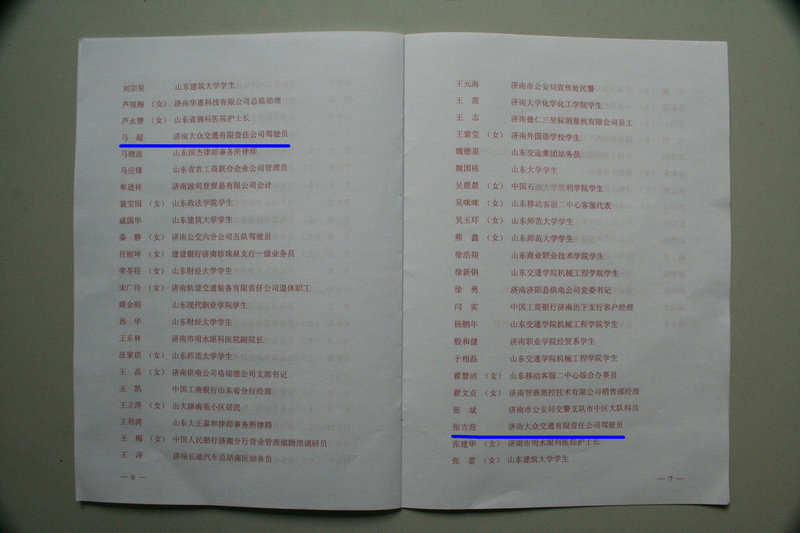 刘宗英 山东建筑大学学生
芦现梅 （女） 济南华惠科技有限公司总监助理
芦永赞 （女） 山东省胸科医院护士长
马 超 济南大众交通有限责任公司驾驶员
马晓波 山东国杰律师事务所律师
马启锋 山东省农工商联合企业公司管理员
牟进祥 济南波司登贸易有限公司会计
裴宝园 （女） 山东政法学院学生
戚国华 山东建筑大学学生
秦 静 （女） 济南公交六分公司五队驾驶员
任丽坤 （女） 建设银行济南珍珠泉支行一级业务员
荣苓钰 （女） 山东财经大学学生
宋广玲 （女） 济南轨道交通装备有限责任公司退休职工
睢金则 山东现代职业学院学生
孙 华 山东财经大学学生
王东林 济南市明水眼科医院副院长
汪家琪 （女） 山东师范大学学生
王 晶 （女） 济南供电公司格瑞德公司支部书记
王 凯 中国工商银行山东省分行经理
王立萍 （女） 山大路南苑小区居民
王利涛 山东大正泰和律师事务所律师
王 梅 （女） 中国人民银行济南分行营业管理部助理调研员
王 涛 济南长途汽车总站南区站务员
— 6 —
王元海 济南市公安局宣传处民警
王 震 济南大学化学化工学院学生
王 志 济南德仁三泉标测量机有限公司员工
王紫莹 （女） 济南外国语学校学生
魏德泉 山东交运集团站务员
魏国栋 山东大学学生
吴晨晨 （女） 中国石油大学胜利学院学生
吴咪咪 （女） 山东移动客服二中心客服代表
吴玉环 （女） 山东师范大学学生
熊 鑫 （女） 山东师范大学学生
徐浩翔 山东商业职业技术学院学生
徐新钢 山东交通学院机械工程学院学生
徐 勇 济南济阳县供电公司党委书记
闫 实 中国工商银行济南历下支行客户经理
杨鹏年 山东交通学院机械工程学院学生
殷和健 济南职业学院经贸系学生
于相磊 山东交通学院机械工程学院学生
翟慧洁 （女） 山东移动客服二中心综合办事员
翟文贞 （女） 济南智嵌测控技术有限公司销售部经理
张 斌 济南市公安局交警支队市中区大队科员
张吉迎 济南大众交通有限责任公司驾驶员
张建华 （女） 济南市明水眼科医院护士长
张 蕾 （女） 山东建筑大学学生
— 7 —